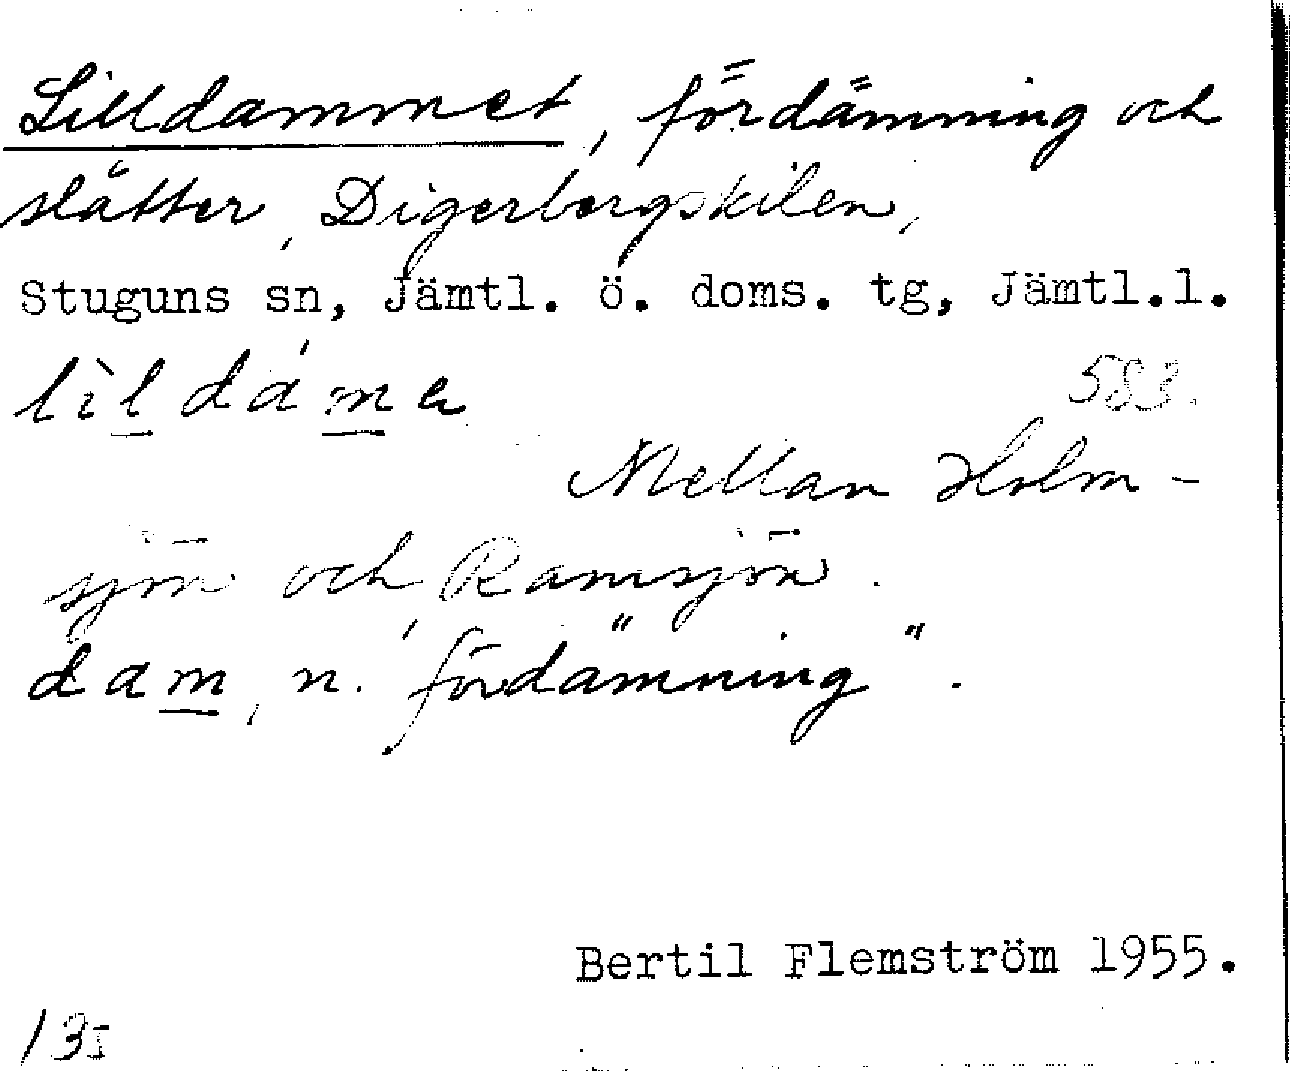 Lilldammet, fördämning och
slåtter, Digerbergskilen,
Stuguns sn, Jämtl. ö. doms. tg, Jämtl.l.
lìldáma
583.
Mellan Holm-
sjön och Ramsjön.
dam, n. "fördämning".
Bertil Flemström 1955.